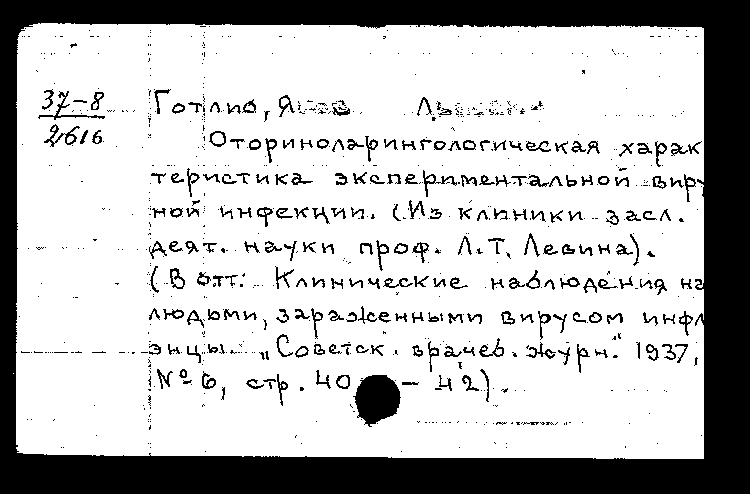 37-8
2616
Готлиб, Яков
Оториноларингологическая харак
теристика экспериментальной виру
ной инфекции. (Из клиники засл.
деят. науки проф. Л.Т. Левина).
(В отт: Клинические наблюдения на
людьми, зараженными вирусом инфл
энцы. „Советск. врачеб. журн." 1937,
№ 6, стр. 40 — 42).